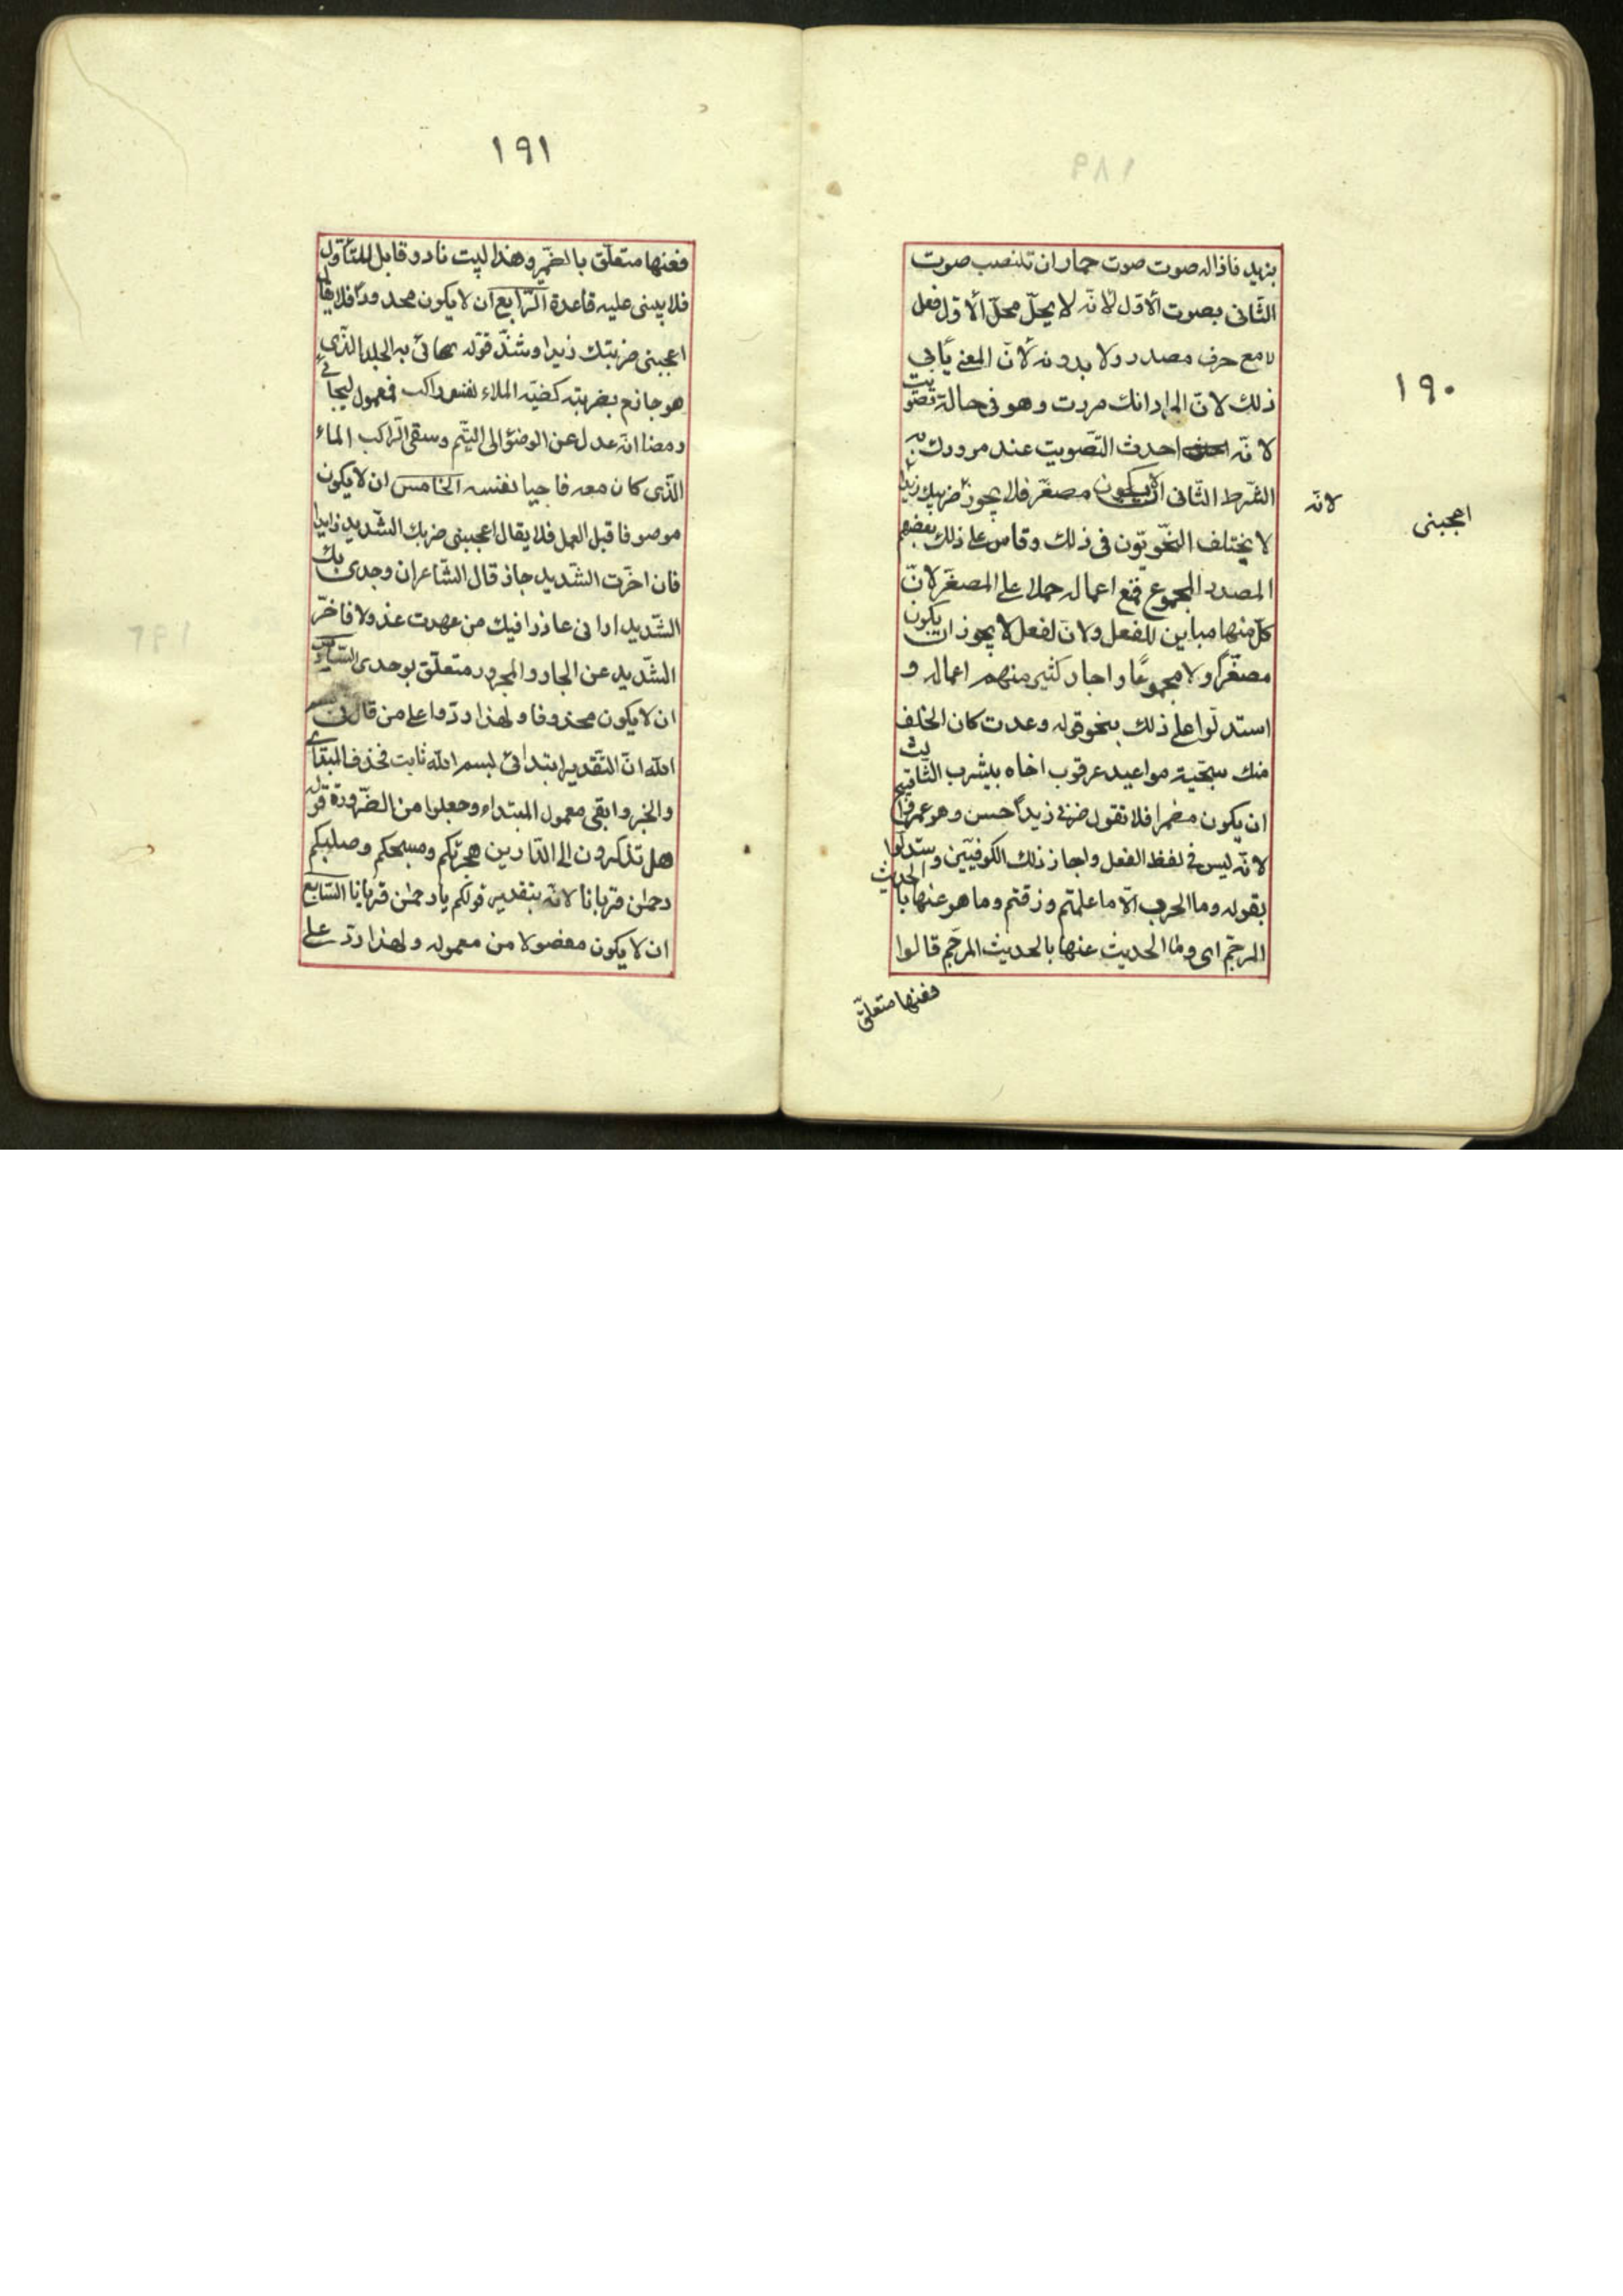 ١٩٠
بزيد فاذا له صوت صوت حمار ان تنصب صوت
الثّانى بصوت الاوّل لانّه لا يحلّ محلّ الاوّل فعل
لا مع حرف مصدر ولا بدونه لانّ المعنى يأبى
ذلك لانّ المراد انك مررت وهو فى حالة تصويت
لا نّه احدث التّصويت عند مرورك به
الشّرط الثّانى ان لا يكون مصغّر فلا يجوز ضريبك زيدا
لانّه
اعجبنى
لا يختلف النّحويّون فى ذلك وقاس على ذلك بعضهم
المصدر المجموع فمنع اعماله حملا على المصغّر لانّ
كلّ منها مباين للفعل ولانّ لفعل لا يجوز ان يكون
مصغّرًا ولا مجموعًا واجاز كثير منهم اعماله و
استدلّوا على ذلك بنحو قوله وعدت كان الخلف
منك سجّية مواعيد عرقوب اخاه بيثرب الثّالث
ان يكون مضمرا فلا تقول ضربى زيداً حسن وهو عمرا قبيح
لانّه ليس فى لفظ الفعل واجاز ذلك الكوفيّين وستدلّوا
بقوله وما الحرب الّا ما علمتم وذقتم وما هو عنها بالحديث
المرجّم اى وما الحديث عنها بالحديث المرجّم قالوا
فعنها متعلّق
١٩١
فعنها متعلّق بالضمير وهذا لبيت نادر قابل للتأوّل
فلا يبنى عليه قاعدة الرّابع ان لا يكون محدودًا فلا يقال
اعجبنى ضربتك زيدا وشذّ قوله يحائى به الجلد الذّى
هو حازم بضربته كفيّه الملاء نفس راكب فمعمول ليحائى
ومضا انّه عدل عن الوضؤ الى التيمّم وسقى الرّاكب الماء
الذّى كان معه فاحيا نفسه الخامس ان لا يكون
موصوفا قبل العمل فلا يقال اعجبنى ضربك الشّديد زايدا
فان اخّرت الشّديد جاز قال الشّاعر ان وجدى بك
الشّديد ارانى عاذرا فيك من عهدت عذولا فاخّر
الشّديد عن الجار والمجرور متعلّق بوجدى السّادس
ان لا يكون محذوفا ولهذا ردّوا على من قال فى بسم
الله انّ التّقدير ابتدائى لبسم الله ثابت فحذف المبتداء
والخبر وابقى معمول المبتداء وجعلوا من الضّرورة قوله
هل تذكرون الى الدّارين هجرتكم ومسحكم وصلبكم
رحمن قربانا لانّه بتقدير قولكم يا رحمن قربانا السّابع
ان لا يكون مفضولا من معموله ولهذا ردّ على